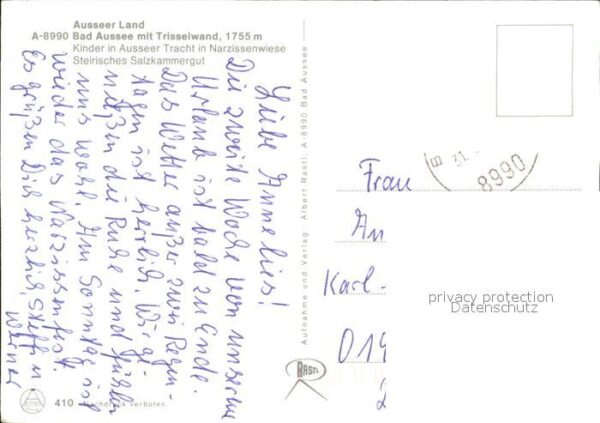 Ausseer Land
A-8990 Bad Aussee mit Trisselwand, 1755 m
Kinder in Ausseer Tracht in Narzissenwiese
Steirisches Salzkammergut
Liebe Annelies!
Die zweite Woche von unserem
Urlaub ist bald zu Ende.
Das Wetter außer zwei Regen-
tagen ist herrlich. Wir ge-
nießen die Ruhe und fühlen
uns wohl. Am Sonntag ist
wieder das Narzissenfest.
Es grüßen Dich herzlich, Steffi u
Werner
Aufnahme und Verlag: Albert Rastl, A-8990 Bad Aussee
31.
8990
Frau
An
Karl-
privacy protection
Datenschutz
019
RASTL
410 Nachdruck verboten.